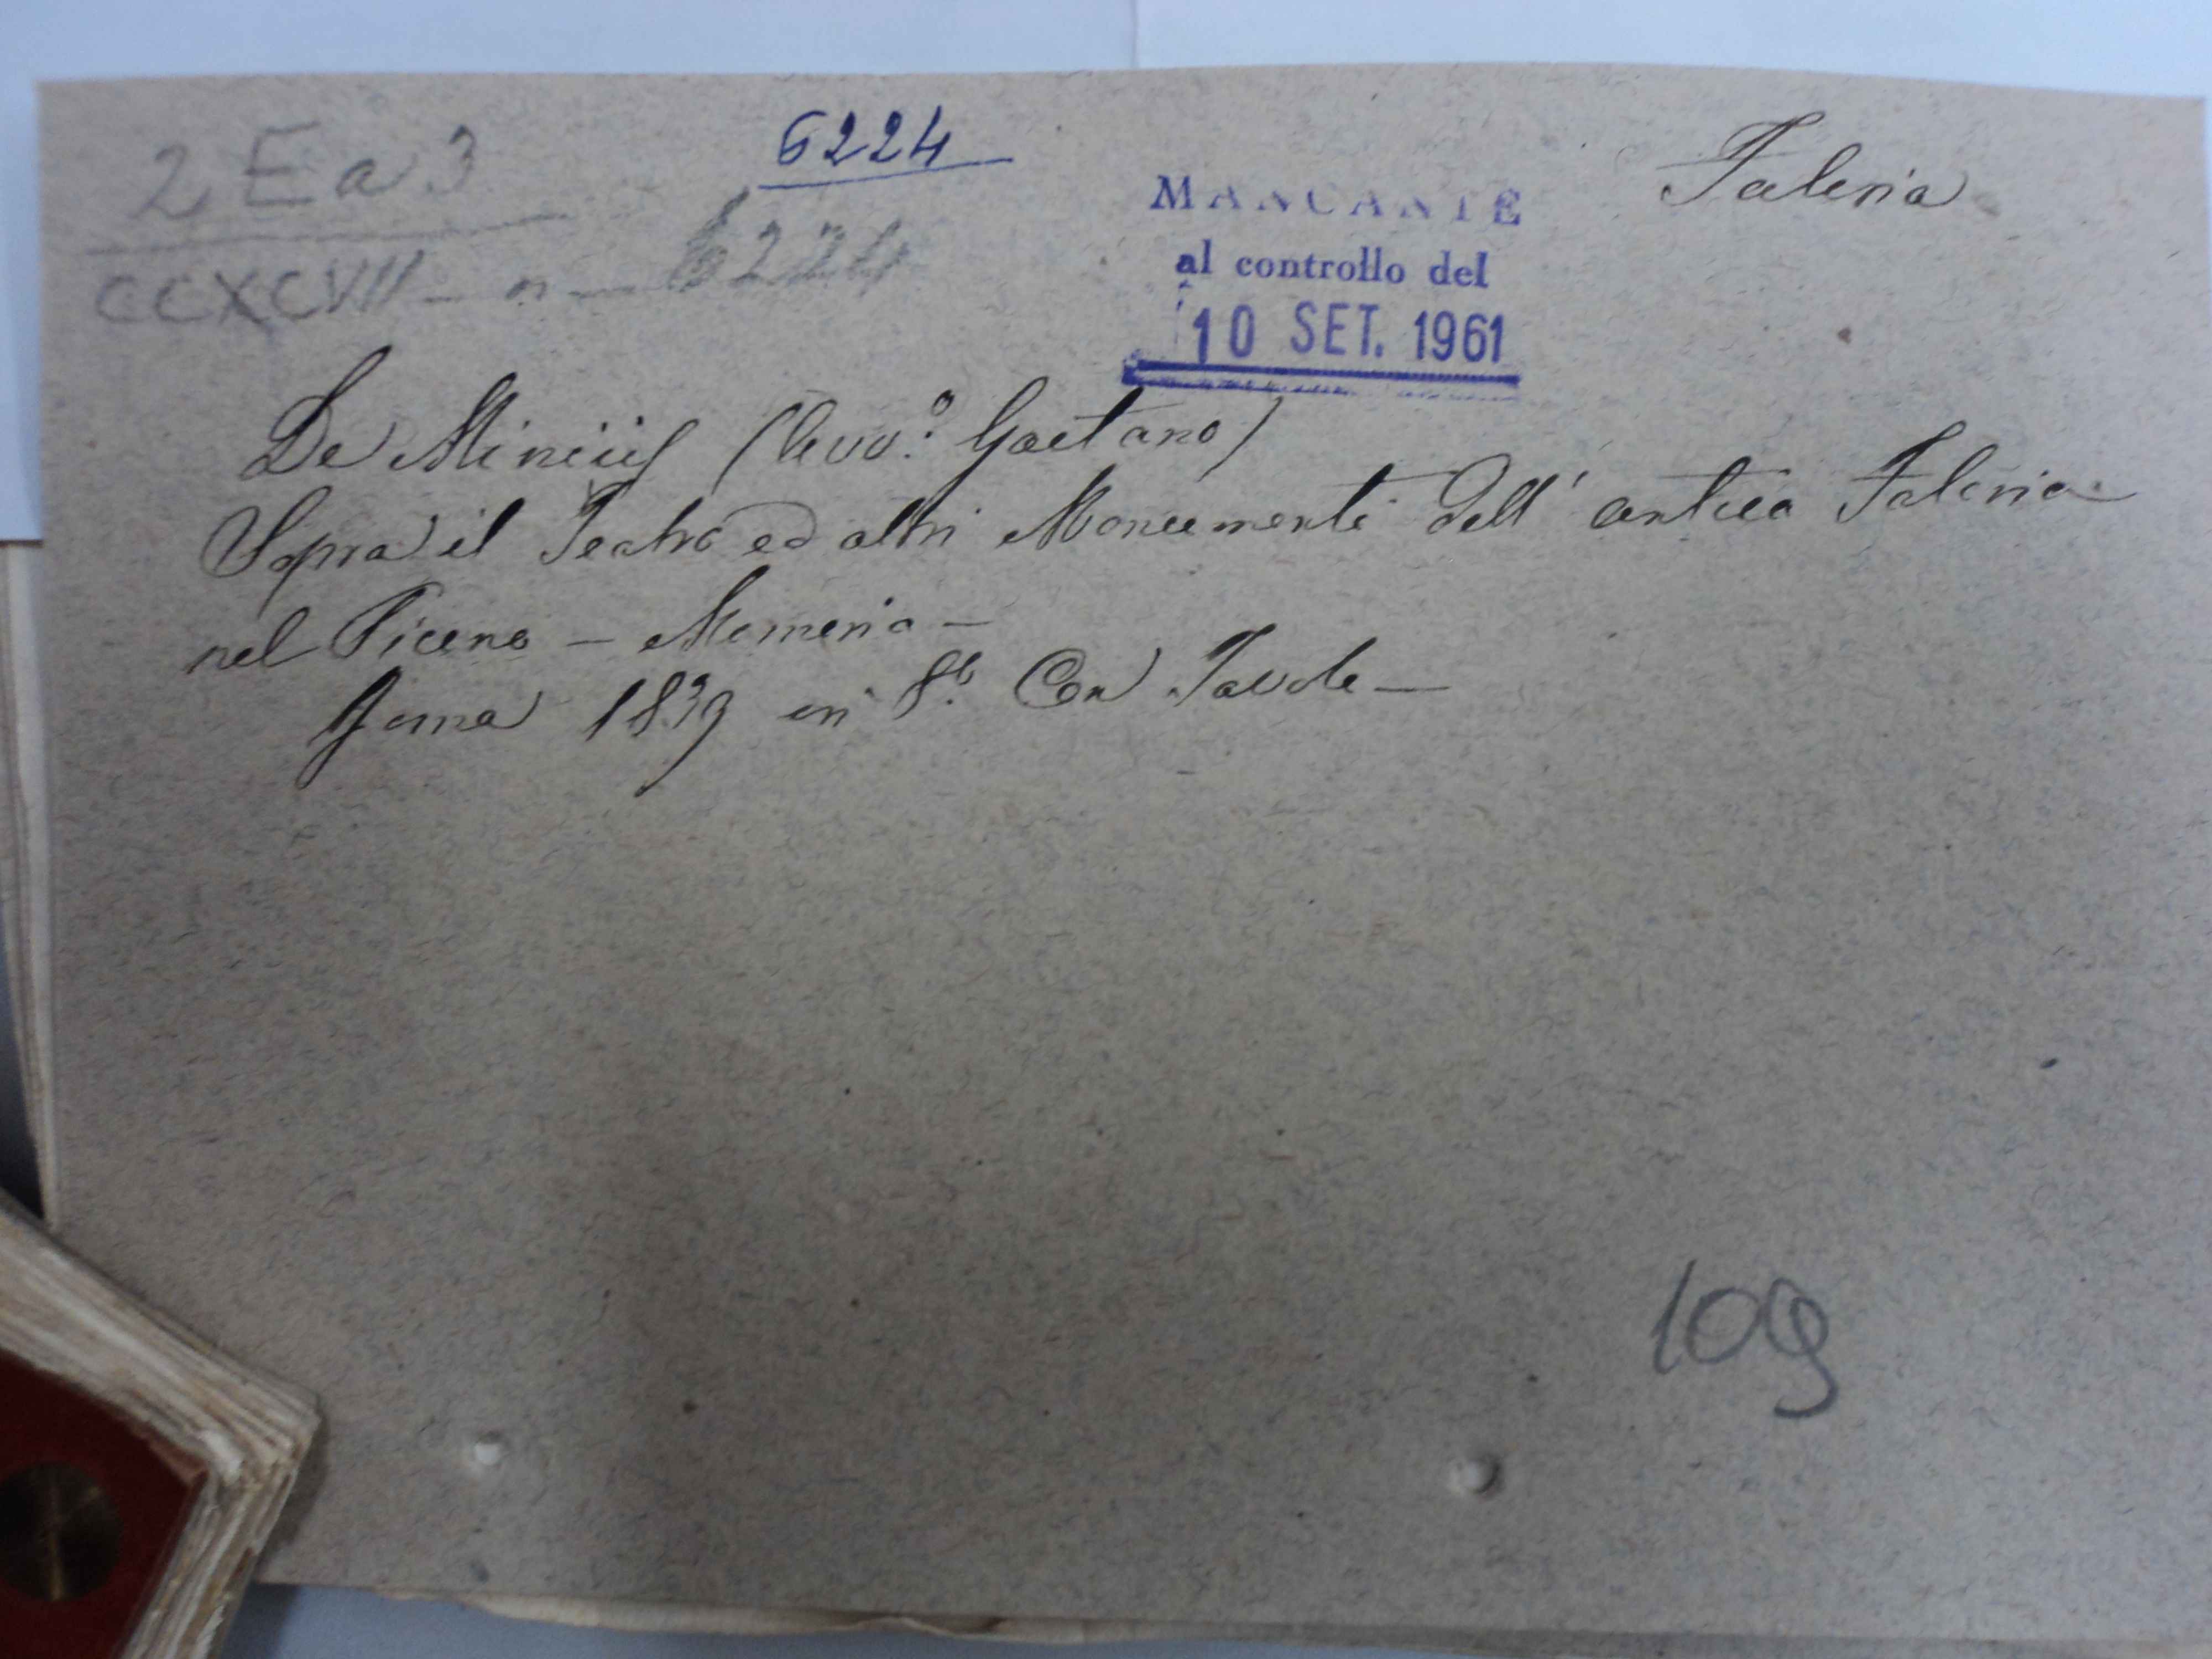 2 Ea 3
6224
Faleria
CCXCVII - n - 6224
MANCANTE
al controllo del
10 SET. 1961
De Minicis (Avv.º Gaetano)
Sopra il Teatro ed altri Monumenti dell' antica Faleria
nel Piceno - Memoria -
Roma 1839 in 8.º Con Tavole -
109